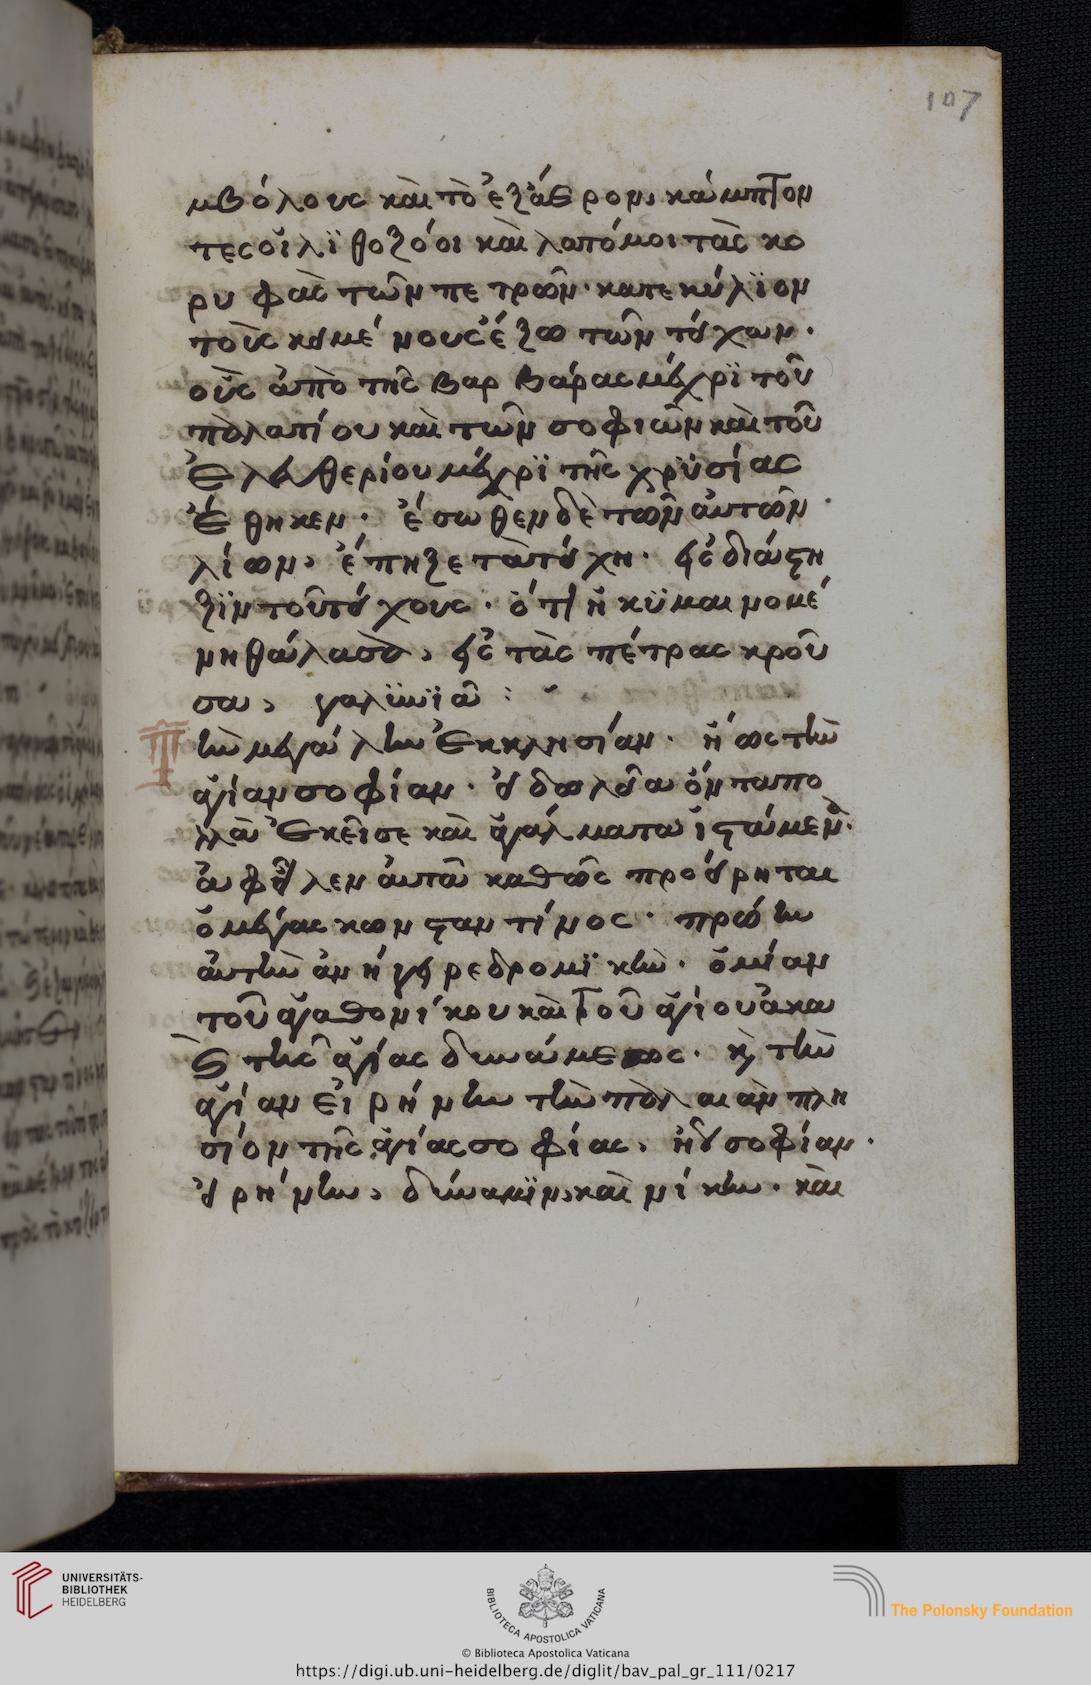 107
μβόλους καὶ τὸ ἐξάερον, κάμπτον
τες οἱ λϊθοξόοι καὶ λαπόμοι τὰς κο
ρυφὰς τῶν πετρῶν· κατεκύλϊον
τοὺς κειμένους ἔξω τῶν τειχων·
οὓς ἀπὸ τῆς βαρβάρας μέχρϊ τοῦ
παλατίου καὶ τῶν σοφιῶν καὶ τοῦ
ἐλευθερίου μέχρϊ τῆς χρϋσίας
ἔθηκεν· ἔσωθεν δὲ τῶν αὐτῶν
λίων, ἔπηξε τὰ τείχη· εἰς διάστη
ξϊν τοῦ τείχους· ὅτι ἡ κϋμαινομέ
νη θάλασσα, εἰς τὰς πέτρας κροῦ
σα, γαλϊνϊᾶ :
Τὴν μεγάλην ἐκκλησίαν· ἤως τὴν
ἁγίαν σοφίαν· εἰδωλεῖα ὄντα πο
λλὰ ἐκεῖσε καὶ ἀγάλματα ἱστάμενα·
ἀφεῖλεν αὐτὰ καθὼς προείρηται
ὁ μέγας κωνσταντίνος· πρώτην
αὐτὴν ἀνήγειρε δρομϊκὴν· ὁμίαν
τοῦ ἀγαθονίκου καὶ τοῦ ἁγίου ἀκα
κίου τῆς ἁγίας δυνάμεως· καὶ τὴν
ἁγίαν εἰρήνην τὴν πάλαιαν πλη
σίον τῆς ἁγίας σοφίας, ἤγουν σοφίαν·
εἰρήνην, δύναμϊν, καὶ νίκην· καὶ
UNIVERSITÄTS-
BIBLIOTHEK
HEIDELBERG
BIBLIOTECA APOSTOLICA VATICANA
The Polonsky Foundation
© Biblioteca Apostolica Vaticana
https://digi.ub.uni-heidelberg.de/diglit/bav_pal_gr_111/0217